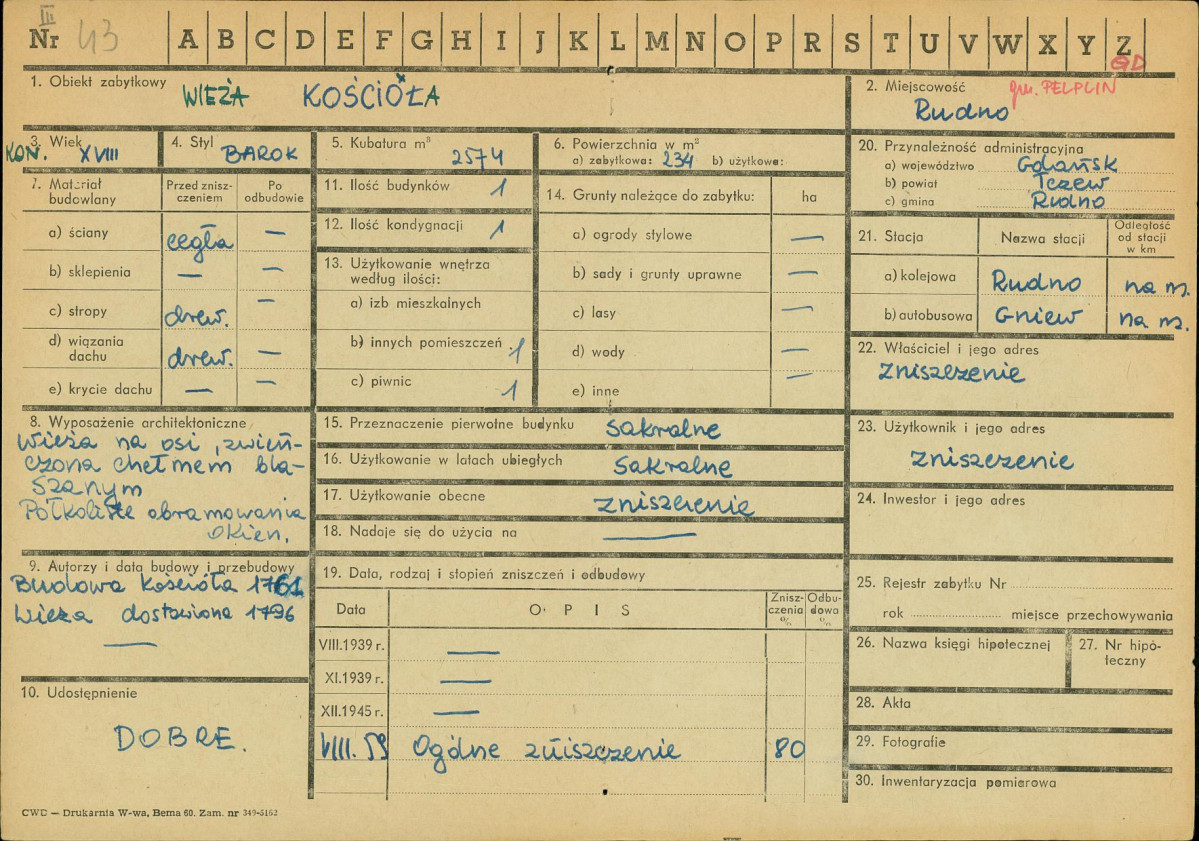 III
Nr 43 A B C D E F G H I J K L M N O P R S T U V W X Y Z
GD
1. Obiekt zabytkowy WIEŻA KOŚCIOŁA
2. Miejscowość gm. PELPLIN
Rudno
3. Wiek KON. XVIII
4. Styl BAROK
5. Kubatura m³ 2574
6. Powierzchnia w m²
a) zabytkowa: 234 b) użytkowe:
20. Przynależność administracyjna
a) województwo Gdańsk
b) powiat Tczew
c) gmina Rudno
7. Materiał budowlany
Przed znisz-
czeniem
Po
odbudowie
a) ściany cegła —
b) sklepienia — —
c) stropy drew. —
d) wiązania
dachu drew. —
e) krycie dachu — —
11. Ilość budynków 1
12. Ilość kondygnacji 1
13. Użytkowanie wnętrza
według ilości:
a) izb mieszkalnych
b) innych pomieszczeń 1
c) piwnic 1
14. Grunty należące do zabytku: ha
a) ogrody stylowe —
b) sady i grunty uprawne —
c) lasy —
d) wody —
e) inne —
21. Stacja Nazwa stacji
Odległość
od stacji
w km
a) kolejowa Rudno na m.
b) autobusowa Gniew na m.
22. Właściciel i jego adres
zniszczenie
8. Wyposażenie architektoniczne
Wieża na osi, zwień-
czona chełmem bla-
szanym
Półkoliste obramowania
okien.
15. Przeznaczenie pierwotne budynku sakralne
16. Użytkowanie w latach ubiegłych sakralne
17. Użytkowanie obecne zniszczenie
18. Nadaje się do użycia na —
23. Użytkownik i jego adres
zniszczenie
24. Inwestor i jego adres
9. Autorzy i data budowy i przebudowy
Budowa kościoła 1761
Wieża dostawiona 1796
—
10. Udostępnienie
DOBRE.
19. Data, rodzaj i stopień zniszczeń i odbudowy
Data OPIS
Znisz-
czenia
%
Odbu-
dowa
%
VIII.1939 r. —
XI.1939 r. —
XII.1945 r. —
VIII.59 Ogólne zniszczenie 80
25. Rejestr zabytku Nr
rok miejsce przechowywania
26. Nazwa księgi hipotecznej
27. Nr hipo-
teczny
28. Akta
29. Fotografie
30. Inwentaryzacja pomiarowa
CWD — Drukarnia W-wa, Bema 60. Zam. nr 349-5163